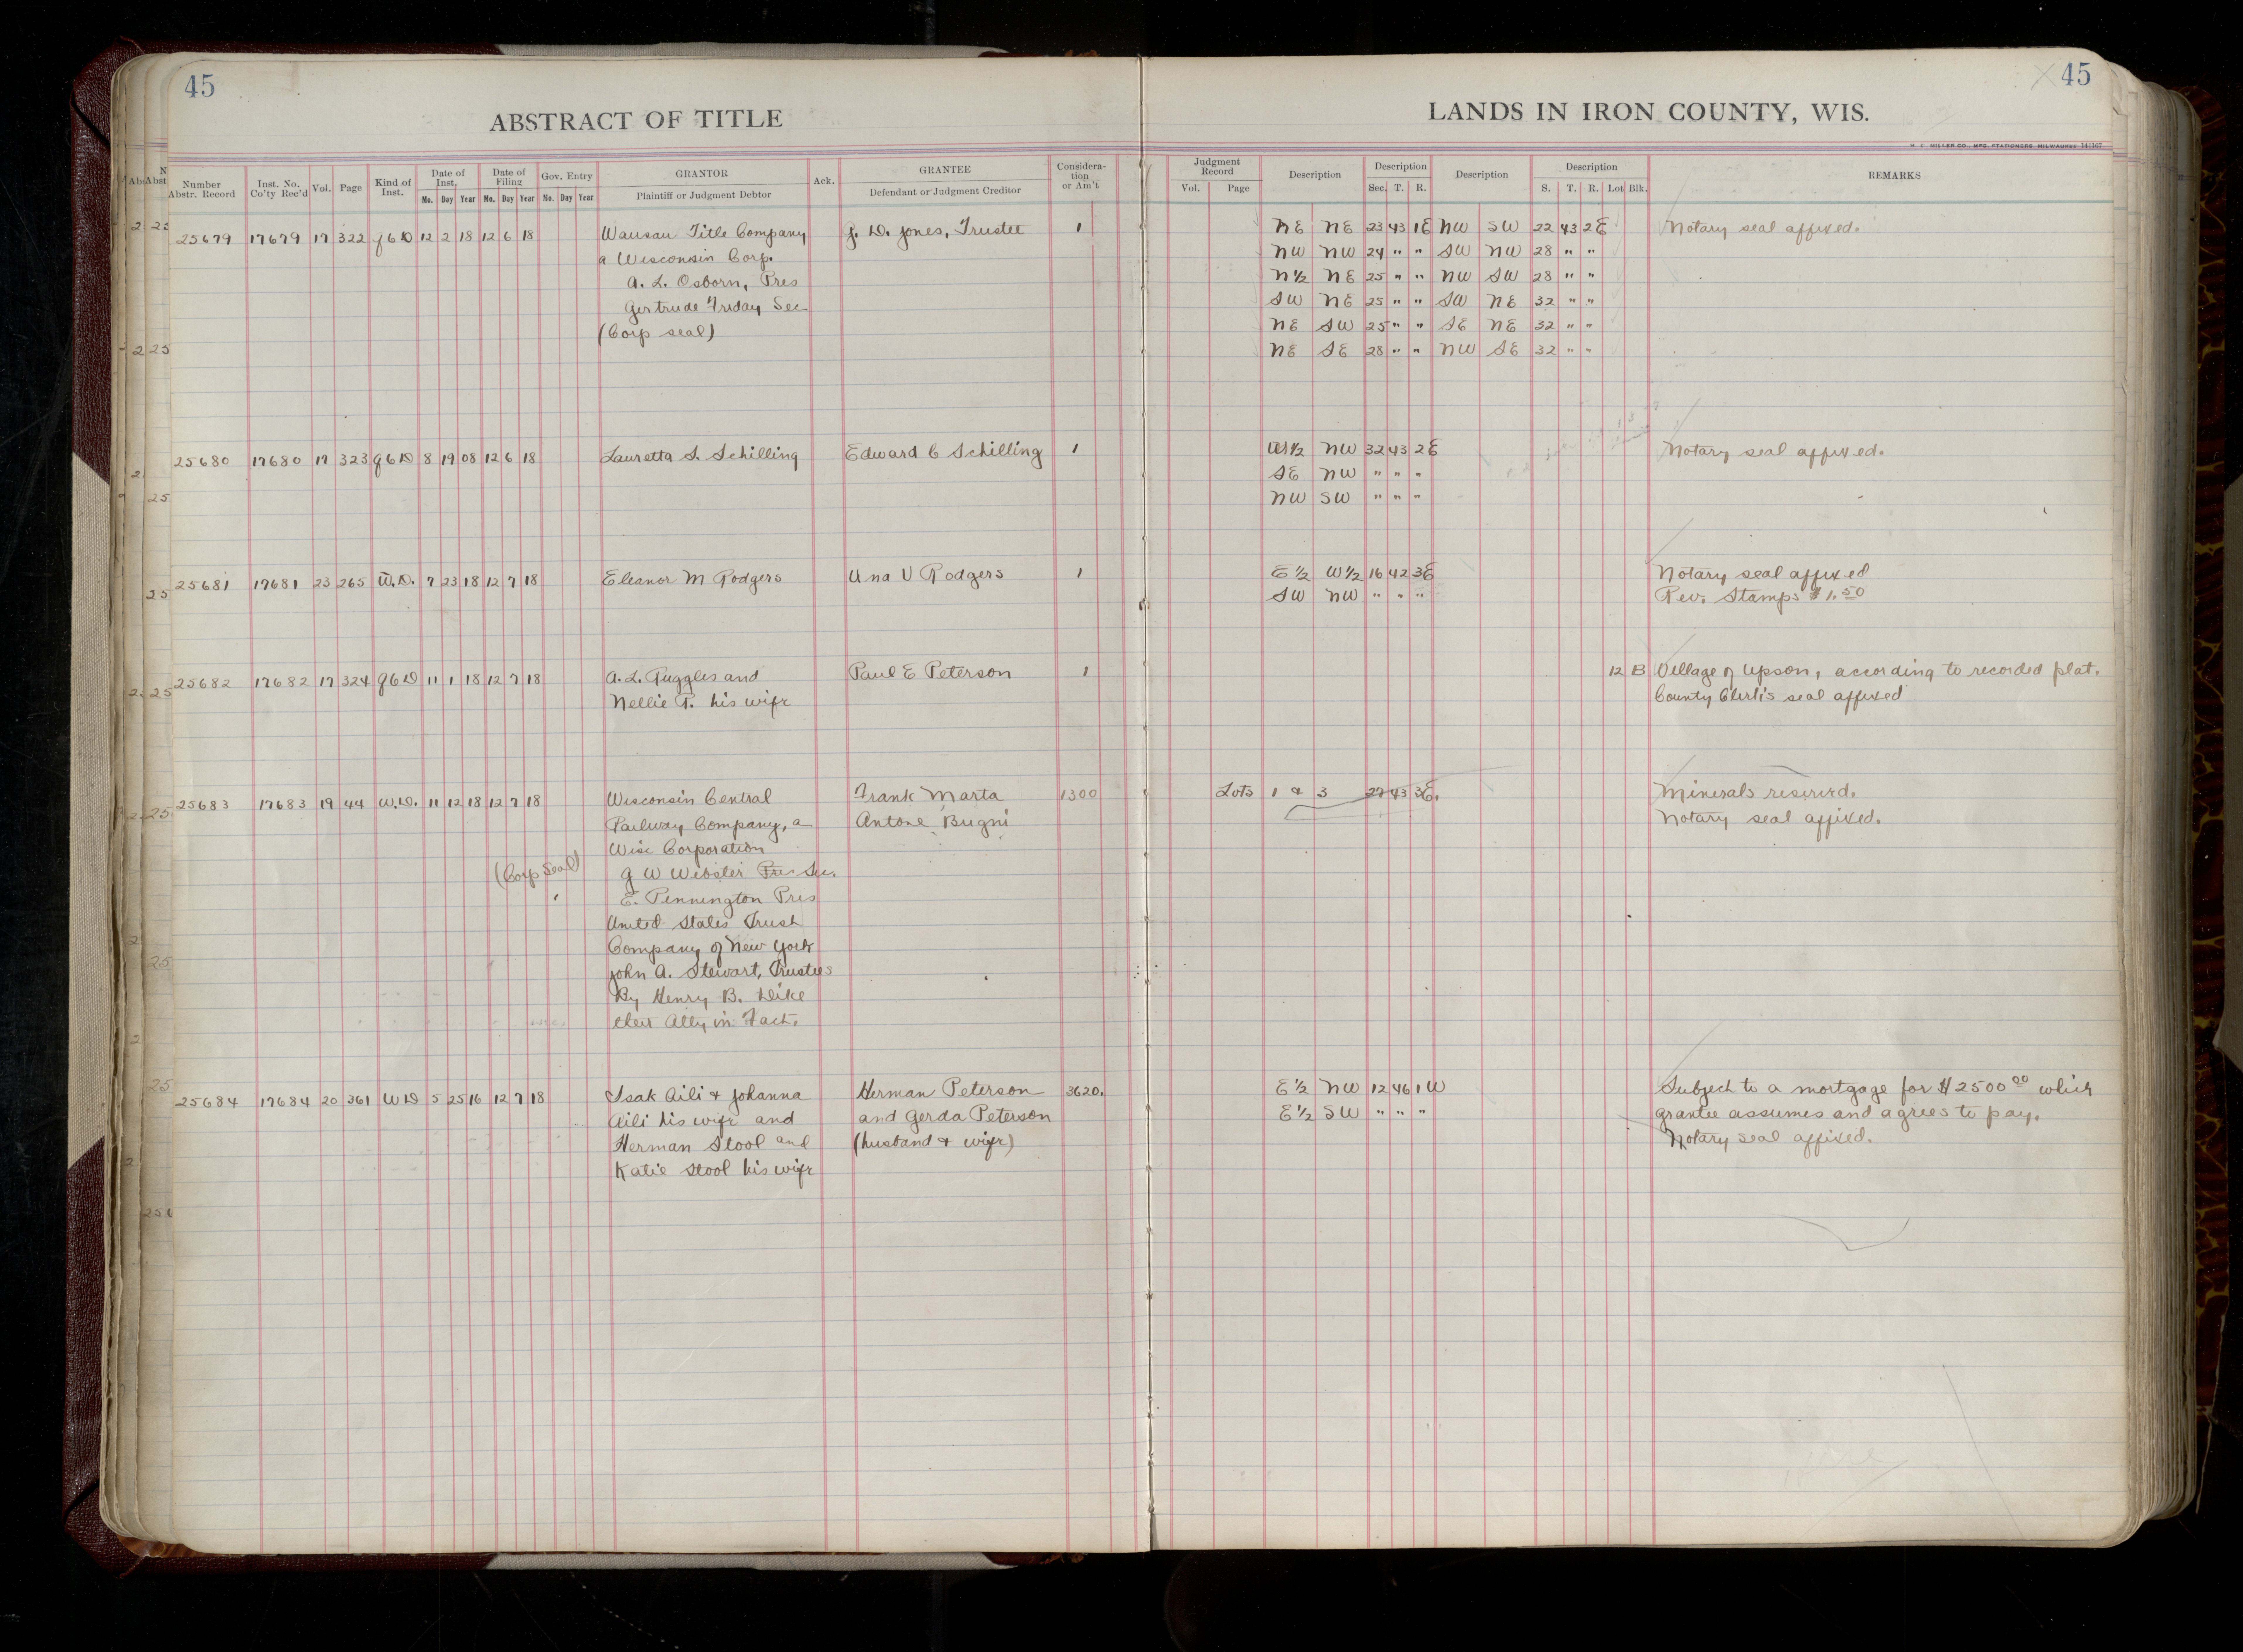 45
45
ABSTRACT OF TITLE
LANDS IN IRON COUNTY, WIS.
Number Abstr. Record | Inst. No. Co'ty Rec'd | Vol. | Page | Kind of Inst. | Date of Inst. Mo. Day Year | Date of Filing Mo. Day Year | Gov. Entry Mo. Day Year | GRANTOR Plaintiff or Judgment Debtor | Ack. | GRANTEE Defendant or Judgment Creditor | Considera-tion or Am't | Judgment Record Vol. Page | Description | Description Sec. T. R. | Description | Description S. T. R. Lot Blk. | REMARKS
25679 17679 17 322 Q6D 12 2 18 12 6 18 Wausau Title Company J. D. Jones, Trustee 1 NE NE 23 43 1E NW SW 22 43 2E Notary seal affixed.
a Wisconsin Corp. NW NW 24 " " SW NW 28 " "
A. L. Osborn, Pres N½ NE 25 " " NW SW 28 " "
Gertrude Friday Sec SW NE 25 " " SW NE 32 " "
(Corp seal) NE SW 25 " " SE NE 32 " "
NE SE 28 " " NW SE 32 " "
25680 17680 17 323 Q6D 8 19 08 12 6 18 Lauretta S. Schilling Edward C Schilling 1 W½ NW 32 43 2E Notary seal affixed.
SE NW " " "
NW SW " " "
25681 17681 23 265 W.D. 7 23 18 12 7 18 Eleanor M Rodgers Una V Rodgers 1 E½ W½ 16 42 3E Notary seal affixed
SW NW " " " Rev. Stamps $1.50
25682 17682 17 324 Q6D 11 1 18 12 7 18 A. L. Ruggles and Paul E Peterson 1 12 B Village of Upson, according to recorded plat.
Nellie R. his wife County Clerk's seal affixed
25683 17683 19 44 W.D. 11 12 18 12 7 18 Wisconsin Central Frank Marta 1300 Lots 1 & 3 27 43 3E. Minerals reserved.
Railway Company, a Antone Bugni Notary seal affixed.
Wisc Corporation
(Corp Seal) G W Webster Pres Sec.
E. Pennington Pres
United States Trust
Company of New York
John A. Stewart, Trustees
By Henry B. Dike
their Atty in Fact.
25684 17684 20 361 WD 5 25 16 12 7 18 Isak Aili & Johanna Herman Peterson 3620. E½ NW 12 46 1W Subject to a mortgage for $2500 00 which
Aili his wife and and Gerda Peterson E½ SW " " " grantee assumes and agrees to pay.
Herman Stool and (husband & wife) Notary seal affixed.
Katie Stool his wife